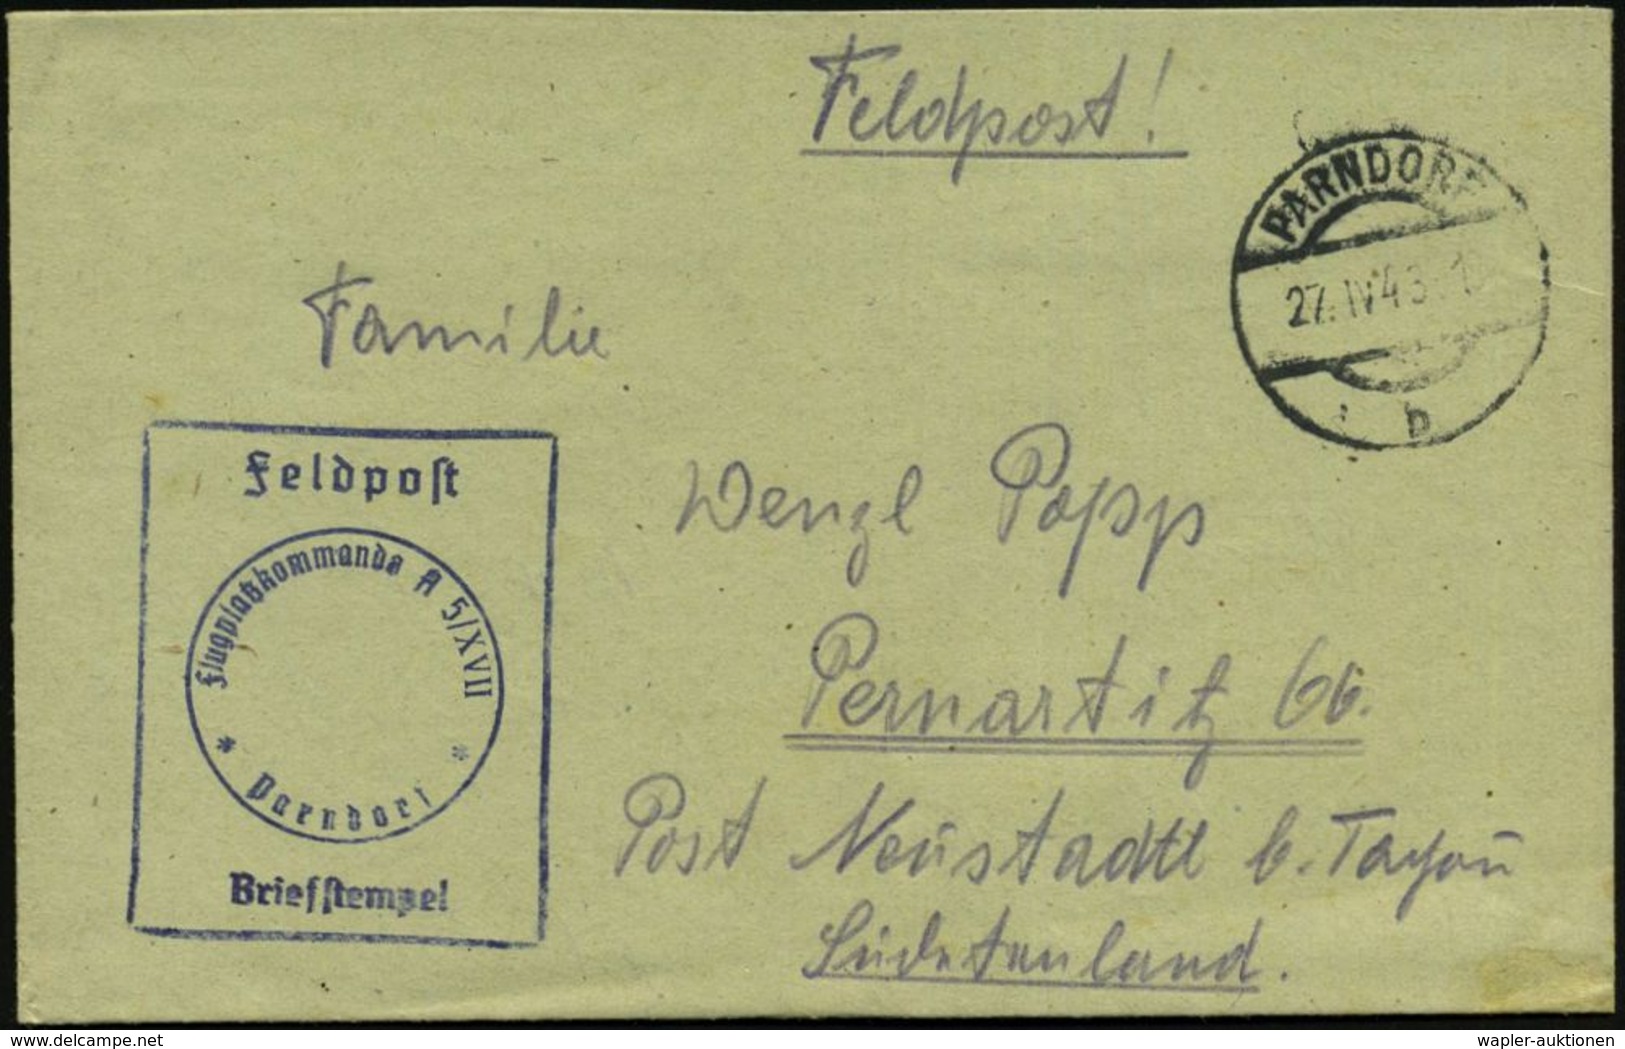 Feldpost!
PARNDORF
27.IV.43.
b
Familie
Feldpost
Flugplatzkommando A 5/XVII
* Parndorf *
Briefstempel
Wenzl Popp
Pernartitz 66.
Post Neustadtl b. Tachau
Sudetenland.
delcampe.net
wapler-auktionen